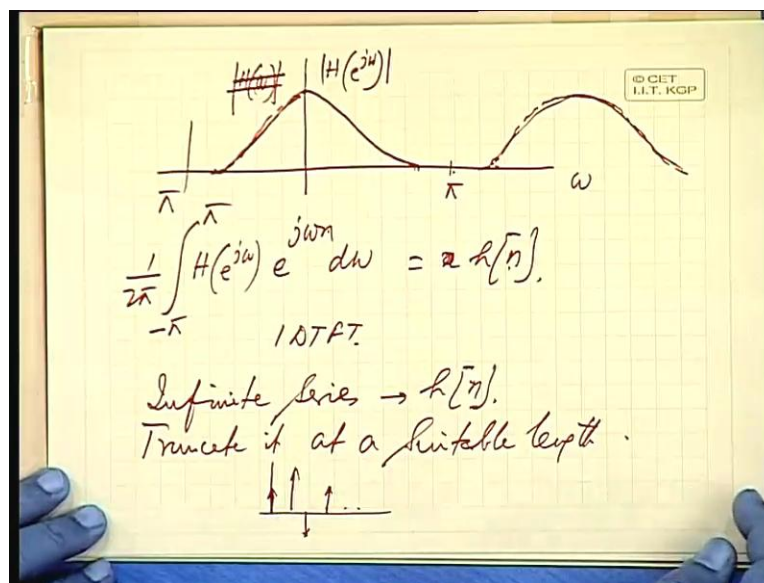 |H(ω)| |H(e^{jω})|
© CET
I.I.T. KGP
π π ω
1/2π ∫_{-π}^{π} H(e^{jω}) e^{jωn} dω = h[n].
IDTFT.
Infinite Series → h[n].
Truncate it at a Suitable length.